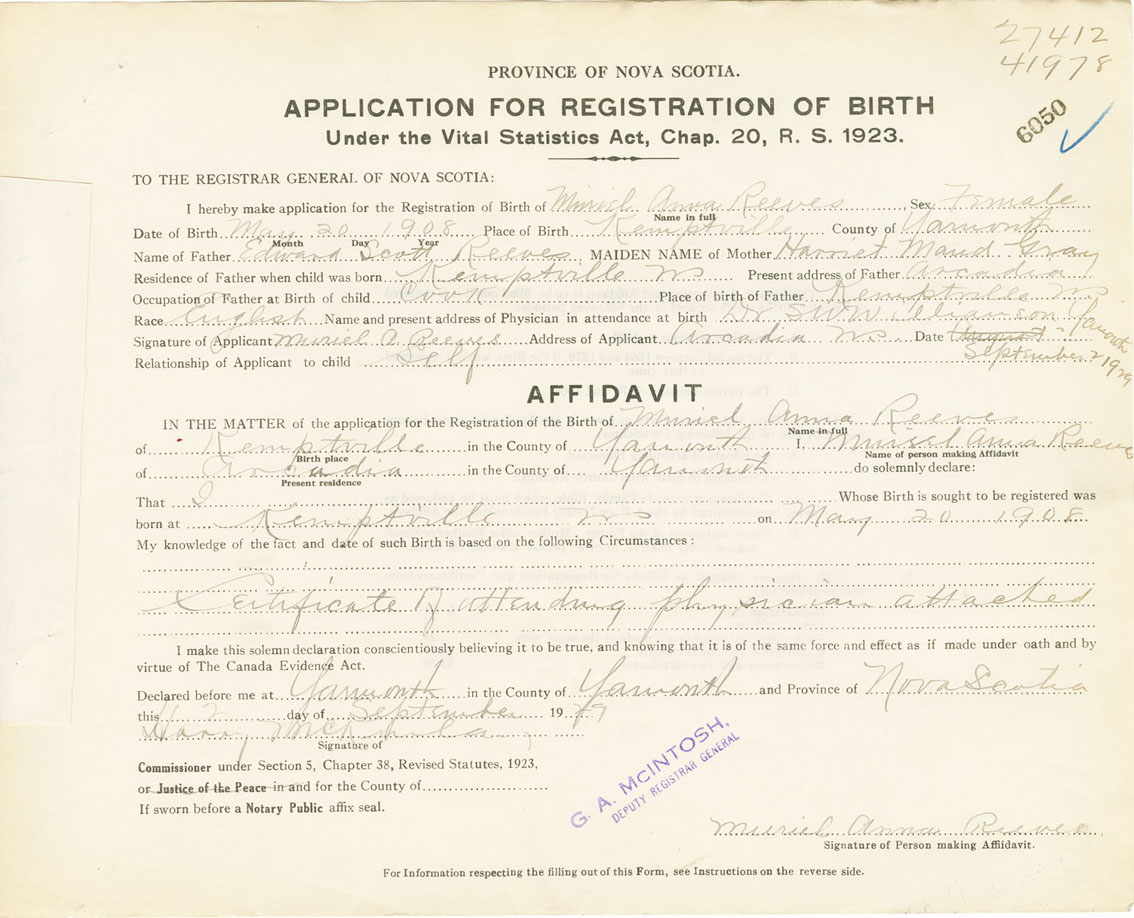 27412
41978
6050
PROVINCE OF NOVA SCOTIA.
APPLICATION FOR REGISTRATION OF BIRTH
Under the Vital Statistics Act, Chap. 20, R. S. 1923.
TO THE REGISTRAR GENERAL OF NOVA SCOTIA:
I hereby make application for the Registration of Birth of Muriel Anna Reeves Sex Female
Name in full
Date of Birth May 20 1908 Place of Birth Kemptville County of Yarmouth
Month Day Year
Name of Father Edward Scott Reeves MAIDEN NAME of Mother Harriet Maud Gray
Residence of Father when child was born Kemptville NS Present address of Father Arcadia
Occupation of Father at Birth of child Cook Place of birth of Father Kemptville NS
Race English Name and present address of Physician in attendance at birth Dr S W Williamson Yarmouth
Signature of Applicant Muriel A Reeves Address of Applicant Arcadia NS Date August
Relationship of Applicant to child Self September 2 1929
AFFIDAVIT
IN THE MATTER of the application for the Registration of the Birth of Muriel Anna Reeves
Name in full
of Kemptville in the County of Yarmouth I, Muriel Anna Reeves
Birth place Name of person making Affidavit
of Arcadia in the County of Yarmouth do solemnly declare:
Present residence
That I Whose Birth is sought to be registered was
born at Kemptville NS on May 20 1908
My knowledge of the fact and date of such Birth is based on the following Circumstances:
Certificate of attending physician attached
I make this solemn declaration conscientiously believing it to be true, and knowing that it is of the same force and effect as if made under oath and by
virtue of The Canada Evidence Act.
Declared before me at Yarmouth in the County of Yarmouth and Province of Nova Scotia
this 2 day of September 1929
Harry
Signature of
Commissioner under Section 5, Chapter 38, Revised Statutes, 1923,
or Justice of the Peace in and for the County of
If sworn before a Notary Public affix seal.
G. A. McINTOSH,
DEPUTY REGISTRAR GENERAL
Muriel Anna Reeves
Signature of Person making Affidavit.
For Information respecting the filling out of this Form, see Instructions on the reverse side.